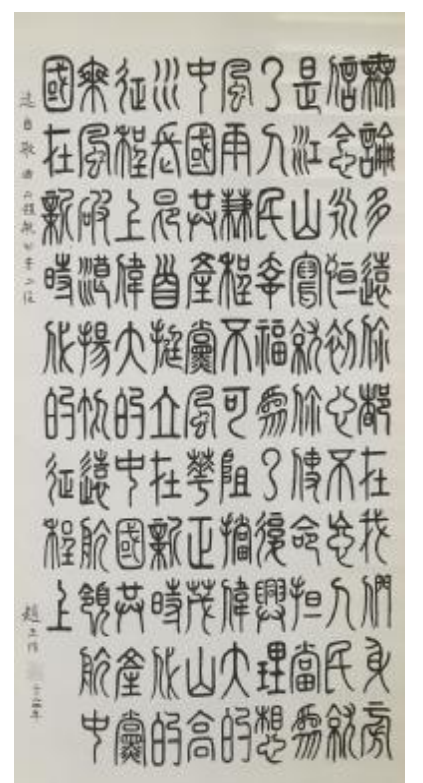 無論多遠你都在我們身旁
信念永恒初心不忘人民就
是江山寫就你使命擔當為
了人民幸福為了復興理想
風雨兼程不可阻擋偉大的
中國共產黨風華正茂山高
水長昂首挺立在新時代的
征程上偉大的中國共產黨
乘風破浪揚帆遠航領航中
國在新時代的征程上
自歌曲